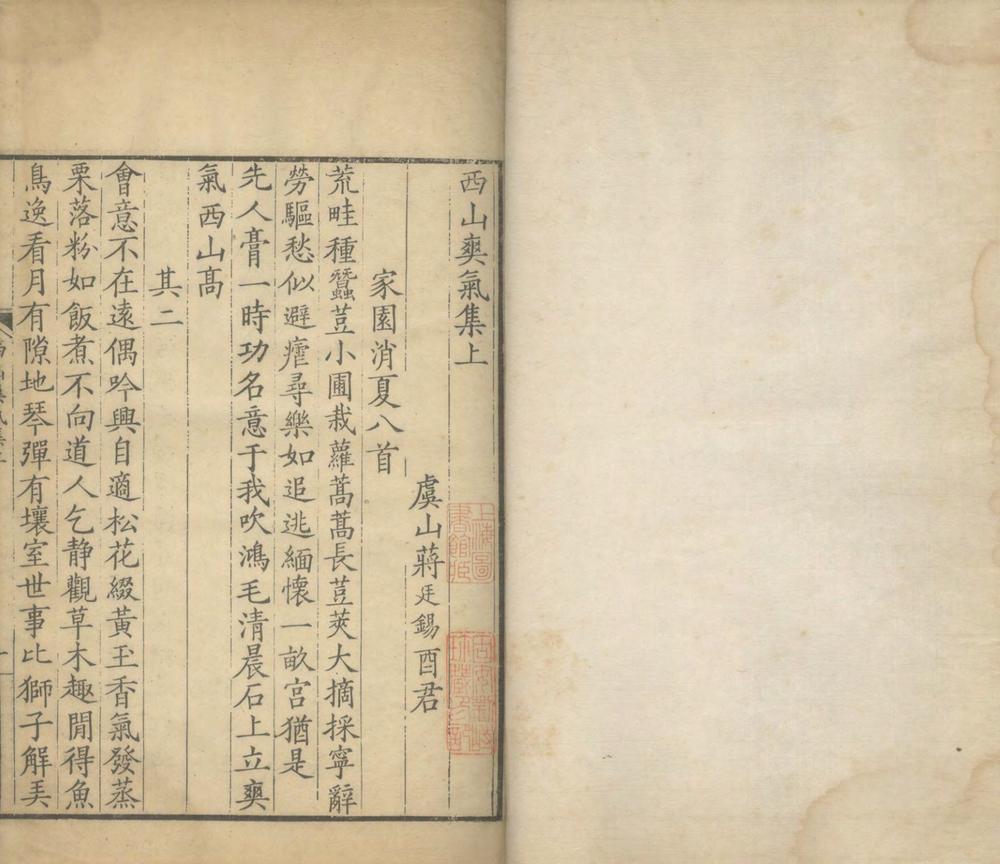 西山爽氣集上
虞山蔣廷錫酉君
家園消夏八首
荒畦種蠶荳小圃栽蘿蒿蒿長荳莢大摘採寧辭
勞驅愁似避瘧尋樂如追逃緬懷一畝宮猶是
先人膏一時功名意于我吹鴻毛清晨石上立爽
氣西山髙
其二
會意不在遠偶吟興自適松花綴黃玉香氣發蒸
栗落粉如飯煮不向道人乞静觀草木趣閒得魚
鳥逸看月有隙地琴彈有壞室世事比獅子解弄
上海圖書館藏